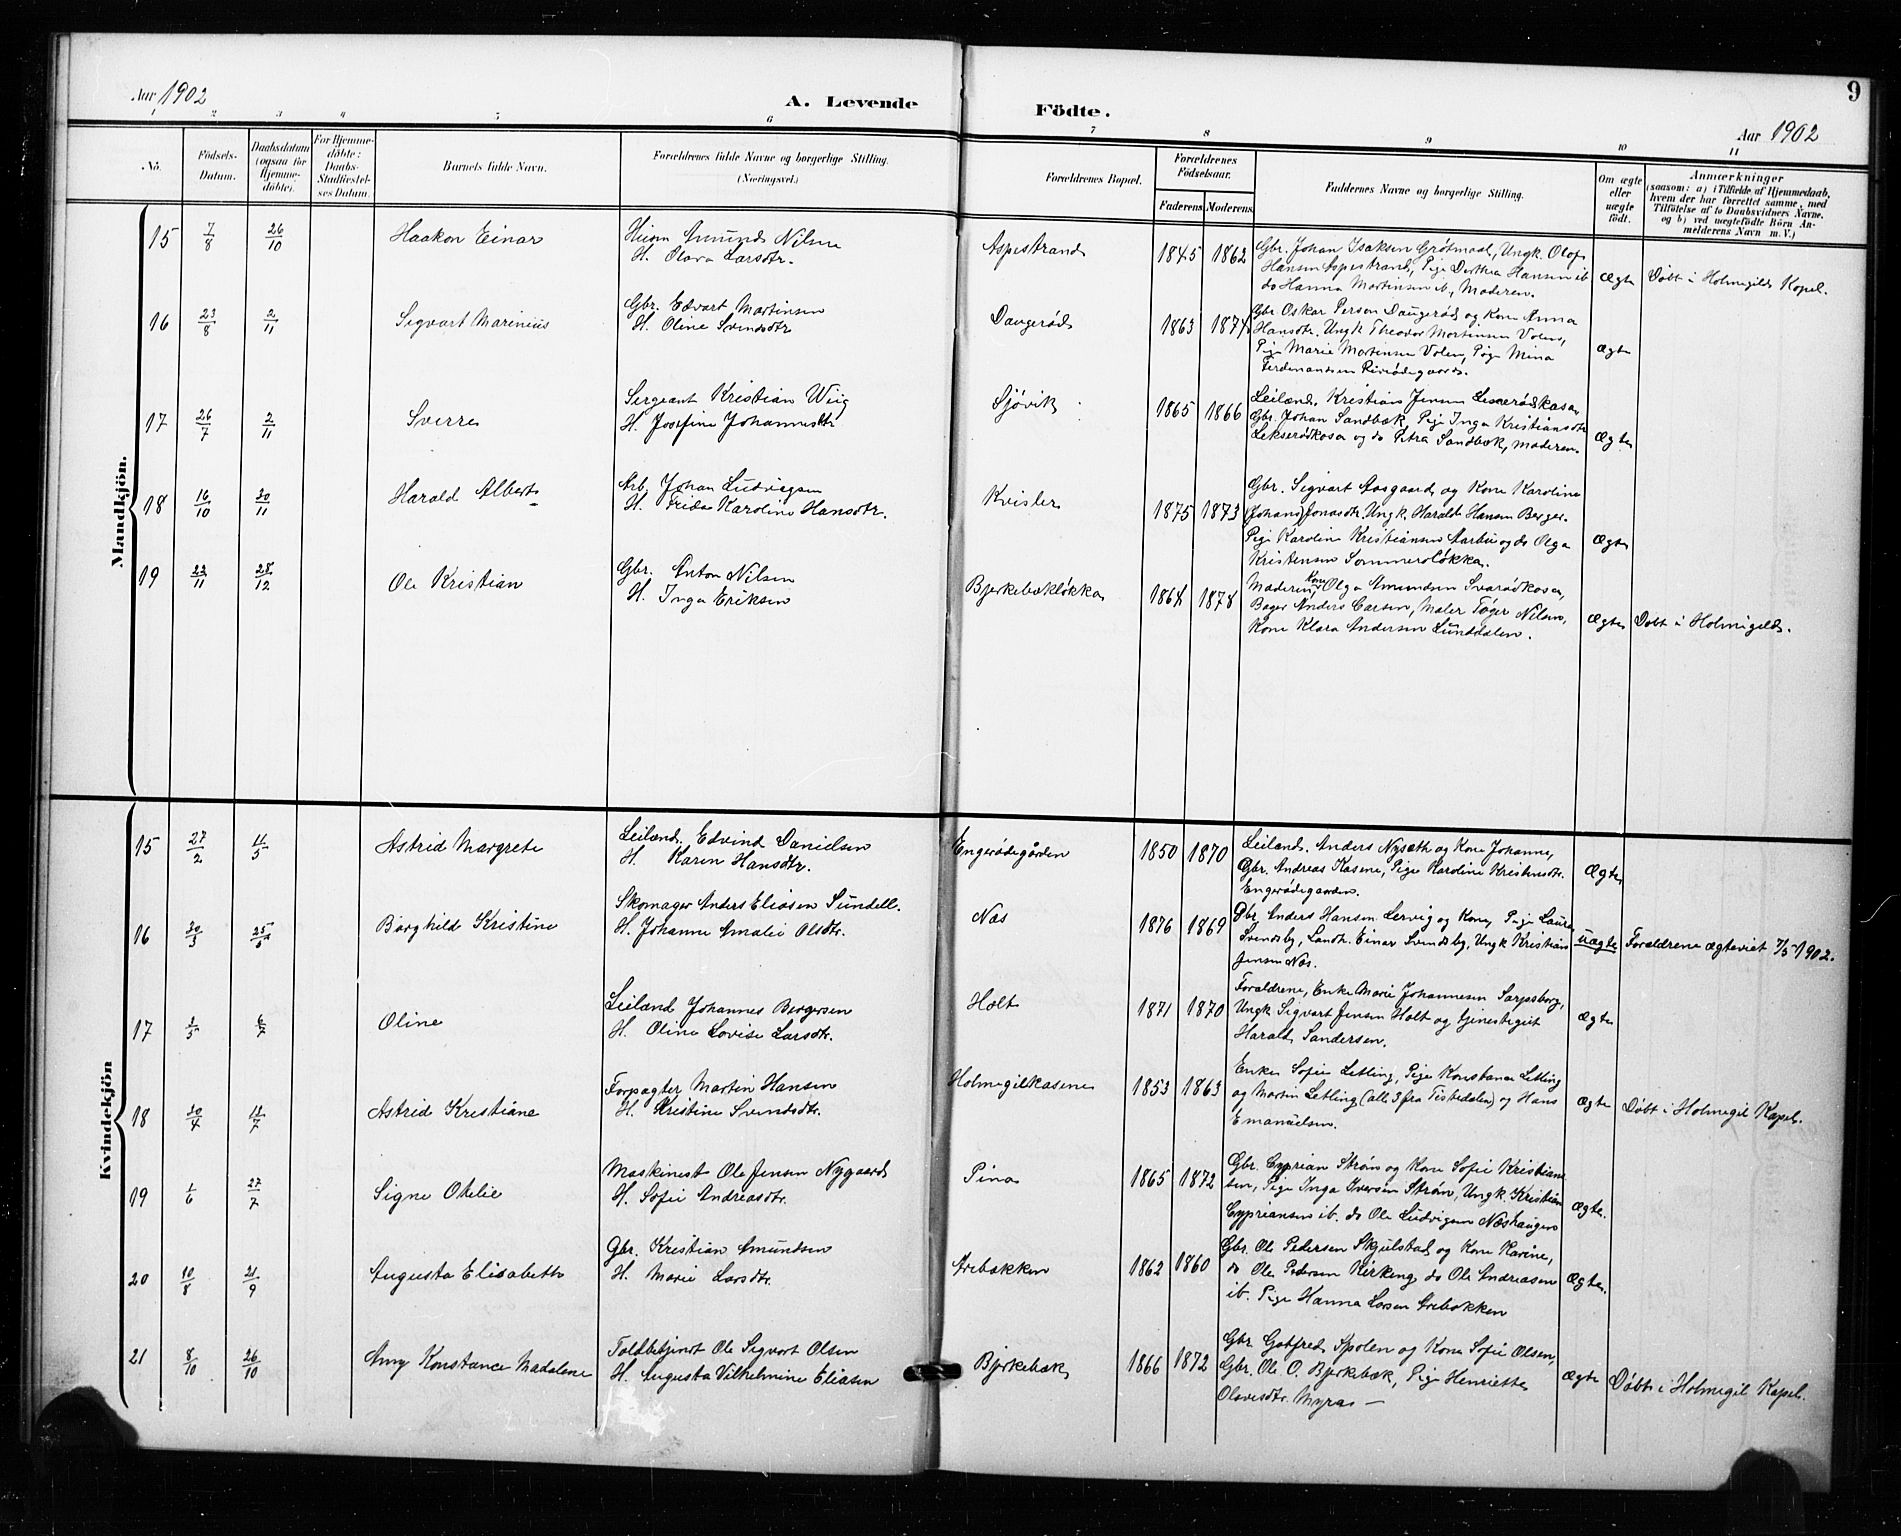 Aar 1902
A. Levende
Födte.
9
Aar 1902
1 2 3 4 5 6 7 8 9 10 11
No.
Födsels-Datum.
Daabsdatum (ogsaa for Hjemmedöbte).
For Hjemmedöbte: Daabs-Stadfæstelses Datum.
Barnets fulde Navn.
Forældrenes fulde Navne og borgerlige Stilling.
(Næringsvei.)
Forældrenes Bopæl.
Forældrenes Födselsaar.
Faderens Moderens
Faddernes Navne og borgerlige Stilling.
Om ægte eller uægte födt.
Anmærkninger
(saasom: a) i Tilfælde af Hjemmedaab,
hvem der har forrettet samme, med
Tilföielse af to Daabsvidners Navne.
og b) ved uægtefödte Börn Anmelderens Navn m. V.)
Mandkjön.
15 7/8 26/10 Haakon Einar
Amund Nilsen
H. Olava Larsdtr.
Aspestrand 1845 1862
Gbr. Johan Isaksen Grötmaal, Ungk. Olof
Hansen Aspestrand, Pige Dorthea Hansen ib
do Hanna Martinsen ib, Moderen.
Ægte Döbt i Holmegilds Kapel.
16 23/8 2/11 Sigvart Marinius
Gbr. Edvart Martinsen
H. Oline Svendsdtr
Daugeröd 1863 1874
Gbr Oskar Person Daugeröd og Kone Anna
Hansdtr. Ungk Theodor Martinsen Volen,
Pige Marie Martinsen Volen, Pige Mina
Ferdinandsen
Ægte
17 26/7 2/11 Sverre
Sergeant Kristian Wiig
H. Josefine Johannesdtr
Sjövik 1865 1866
Leilænd. Kristian Jensen
Gbr. Johan Sandbæk, Pige Inga Kristiansdtr
Lekserödkasa og do Petra Sandbæk, Moderen.
Ægte
18 16/10 30/11 Harald Albert
Arb. Johan Ludvigsen
H. Frida Karoline Hansdtr.
Kvisler 1875 1873
Gbr. Sigvart Aasgaard og Kone Karoline
(Johans) Jonasdtr. Ungk. Harald Hansen Berger.
Pige Karoline Kristiansen Aarbu og do Olga
Kristensen Sommerolökka.
Ægte
19 22/11 28/12 Ole Kristian
Gbr. Anton Nilsen
H. Inga Eriksen
Bjerkebæklökka 1864 1878
Moderen, Kone Olga Amundsen Svarödkasa,
Bager Anders Carsen, Maler Töger Nilsen,
Kone Klara Andersen Lunddalen.
Ægte Döbt i Holmegilds.
Kvindekjön
15 27/2 11/5 Astrid Margrete
Leilænd. Edvind Danielsen
H. Karen Hansdtr.
Engerödegården 1850 1870
Leilænd. Anders Nysæth og Kone Johanne,
Gbr. Andreas Kasene, Pige Karoline Kristensdtr.
Engerödegaarden.
Ægte
16 30/3 25/5 Borghild Kristine
Skomager Anders Eliasen Sundell.
H. Johanne Amalie Olsdtr.
Næs 1876 1869
Gbr Anders Hansen Lervig og Kone, Pige Laura
Svendsby, Landh. Einar Svendsby, Ungk Kristian
Jensen Næs.
uægte Forældrene ægteviet 7/5 1902.
17 1/5 6/7 Oline
Leilænd Johannes Bergersen
H. Oline Lovise Larsdtr.
Holt 1871 1870
Forældrene, Enke Marie Johannesen Sarpsborg,
Ungk Sigvart Jensen Holt og tjenestegut
Harald Sandersen.
Ægte
18 30/4 11/7 Astrid Kristiane
Forpagter Martin Hansen
H. Kristine Svendsdtr.
Holmegilkasene 1853 1863
Enke Sofie Letling, Pige Konstance Letling
og Martin Letling (alle 3 fra Tistedalen) og Hans
Emanuelsen.
Ægte Döbt i Holmegil Kapel.
19 1/6 27/7 Signe Otelie
Maskinest Ole Jensen Nygaard
H. Sofie Andreasdtr.
Pina 1865 1872
Gbr. Cyprian Ström og Kone Sofie Kristian-
sen, Pige Inga Iversen Ström, Ungk. Kristian
Cypriansen ib. do Ole Ludvigsen Næshaugen
Ægte.
20 10/8 21/9 Augusta Elisabeth
Gbr. Kristian Amundsen
H. Marie Larsdtr.
Arebakken 1862 1860
Gbr. Ole Pedersen Skjulstad og Kone Karine,
do Ole Pedersen Kirkeng, do Ole Andreasen
ib. Pige Hanna Larsen Arebakken
Ægte.
21 8/10 26/10 Amy Konstance Madalene
Toldbetjent Ole Sigvart Olsen
H. Augusta Vilhelmine Eliasen
Bjerkebæk 1866 1872
Gbr Gotfred Spolen og Kone Sofie Olsen,
Gbr. Ole O. Bjerkebæk, Pige Henriette
Olavesdtr. Myra —
Ægte Döbt i Holmegil Kapel.